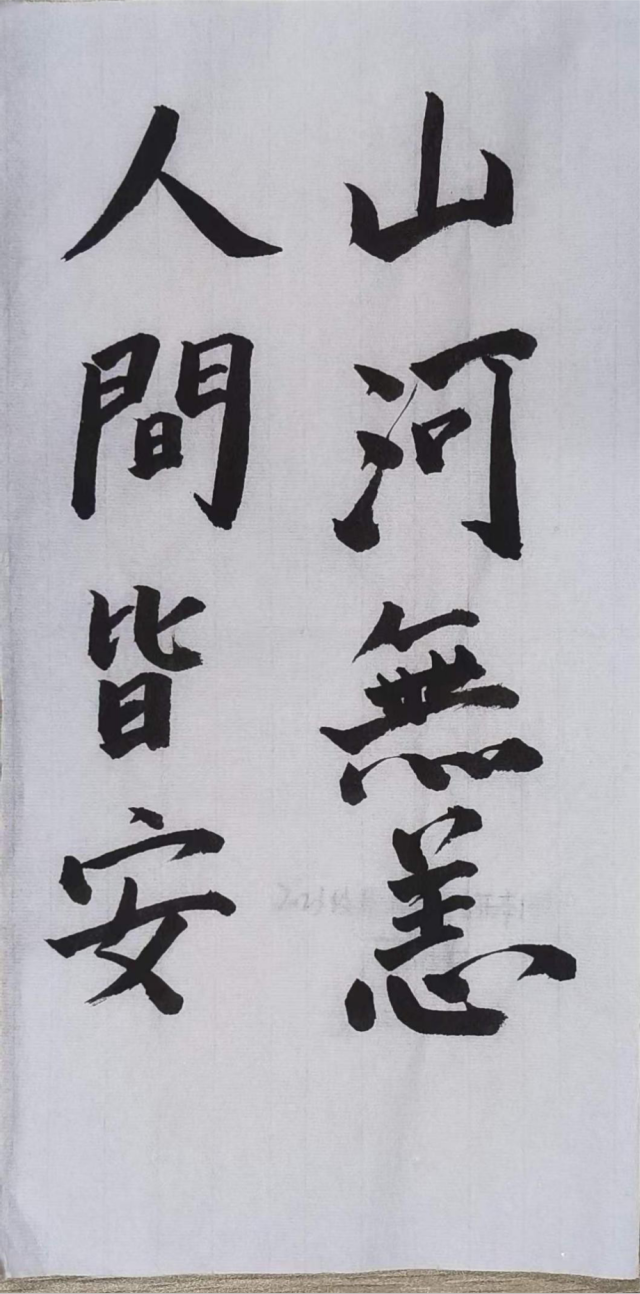 山河無恙
人間皆安